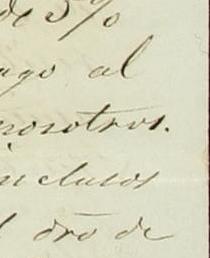 de 5%
ago al
nosotros.
inclusos
l dro de